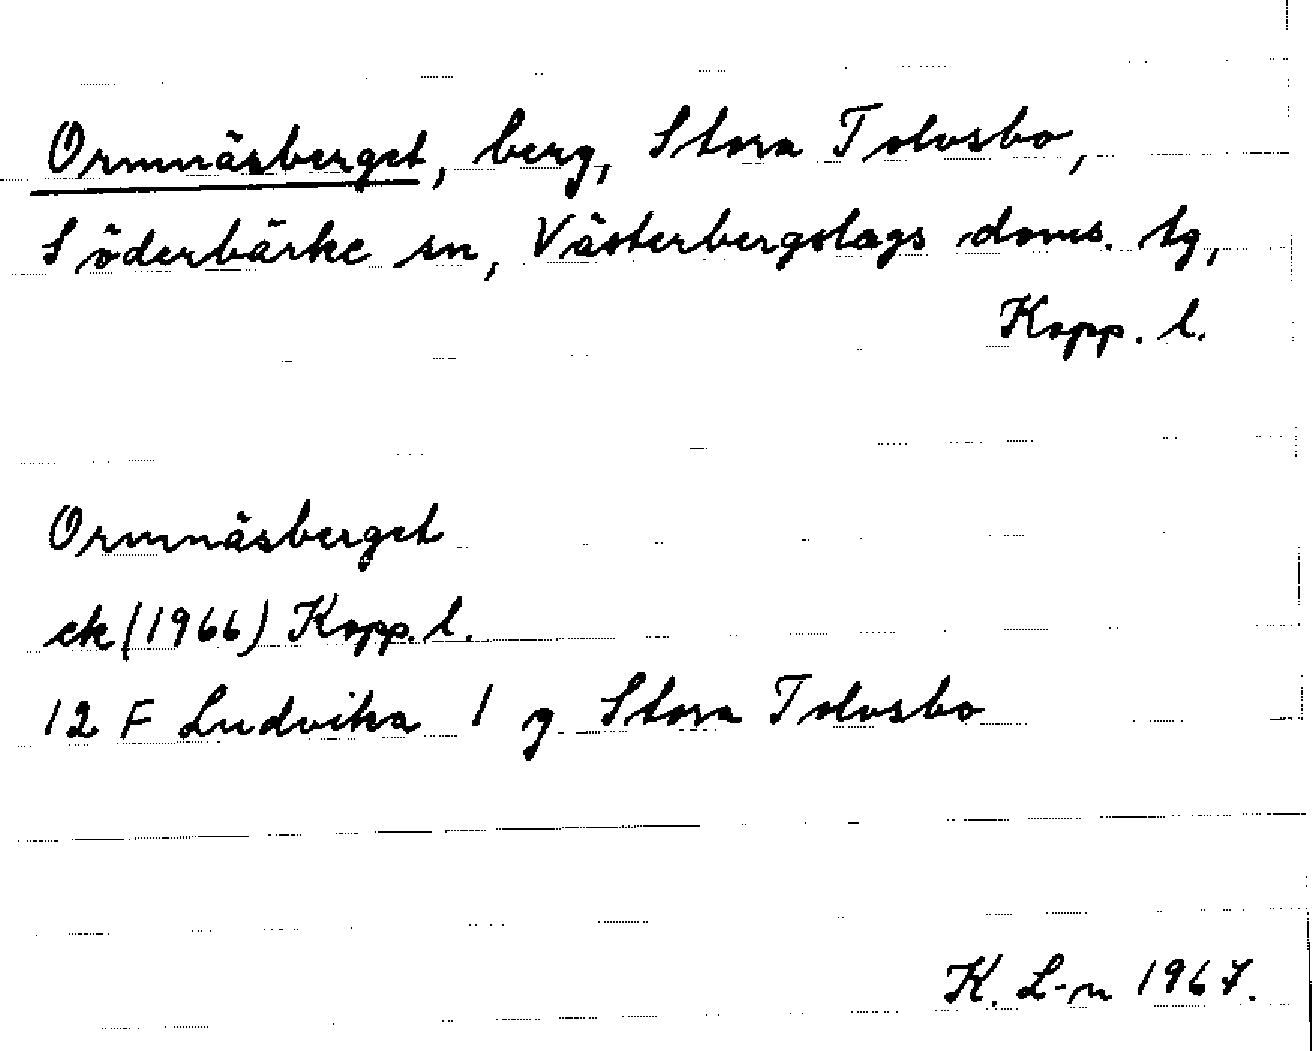 Ormnäsberget, berg, Stora Tolvsbo,
Söderbärke sn, Västerbergslags doms. tg,
Kopp. l.
Ormnäsberget
ek (1966) Kopp. l.
12 F Ludvika 1 g Stora Tolvsbo
K. L-n 1967.